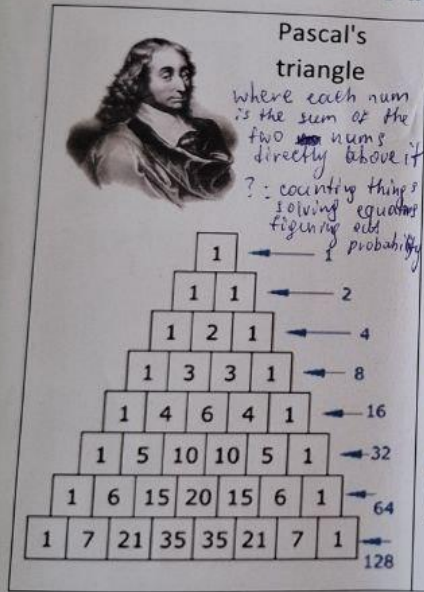 Pascal's
triangle
where each num
is the sum of the
two nums
directly above it
? : counting things
solving equations
figuring out
probability
1 1
1 1 2
1 2 1 4
1 3 3 1 8
1 4 6 4 1 16
1 5 10 10 5 1 32
1 6 15 20 15 6 1 64
1 7 21 35 35 21 7 1 128